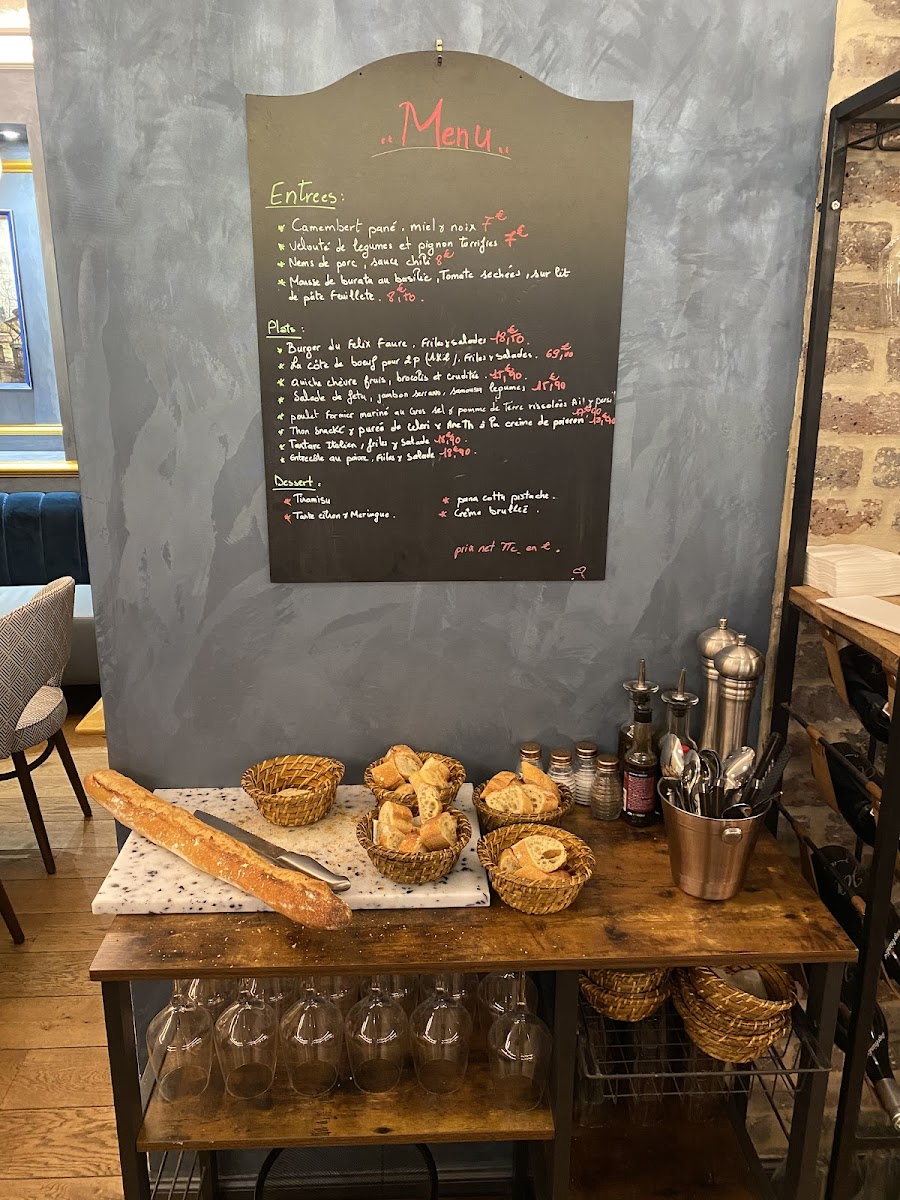 Menu
Entrees:
Camembert pané, miel & noix 7€
Velouté de legumes et pignon torrifies 7€
Nems de porc, sauce chili 8€
Mousse de burata au basilic, Tomate sechées, sur lit
de pâte feuillete. 8,50€.
Plats:
Burger du Felix Faure, Frites & salades 18,50€.
La côte de boeuf pour 2p (1K2), Frites & Salades. 69,00€
Quiche chèvre frais, brocolis et crudités. 15,90€.
Salade de feta, jambon serrano, samoussa legumes 15,90€
poulet fermier mariné au Gros sel & pomme de Terre rissolées Ail & persil
Thon Snacké & purée de Celeri & Aneth à la creme de poivron
Tartare Italien, frites & Salade 18,90€.
Entrecôte au poivre, Frites & Salade 18,90€.
Dessert.
Tiramisu
pana cotta pistache.
Tarte citron & Meringue.
Crème brullée.
prix net TTC en €.